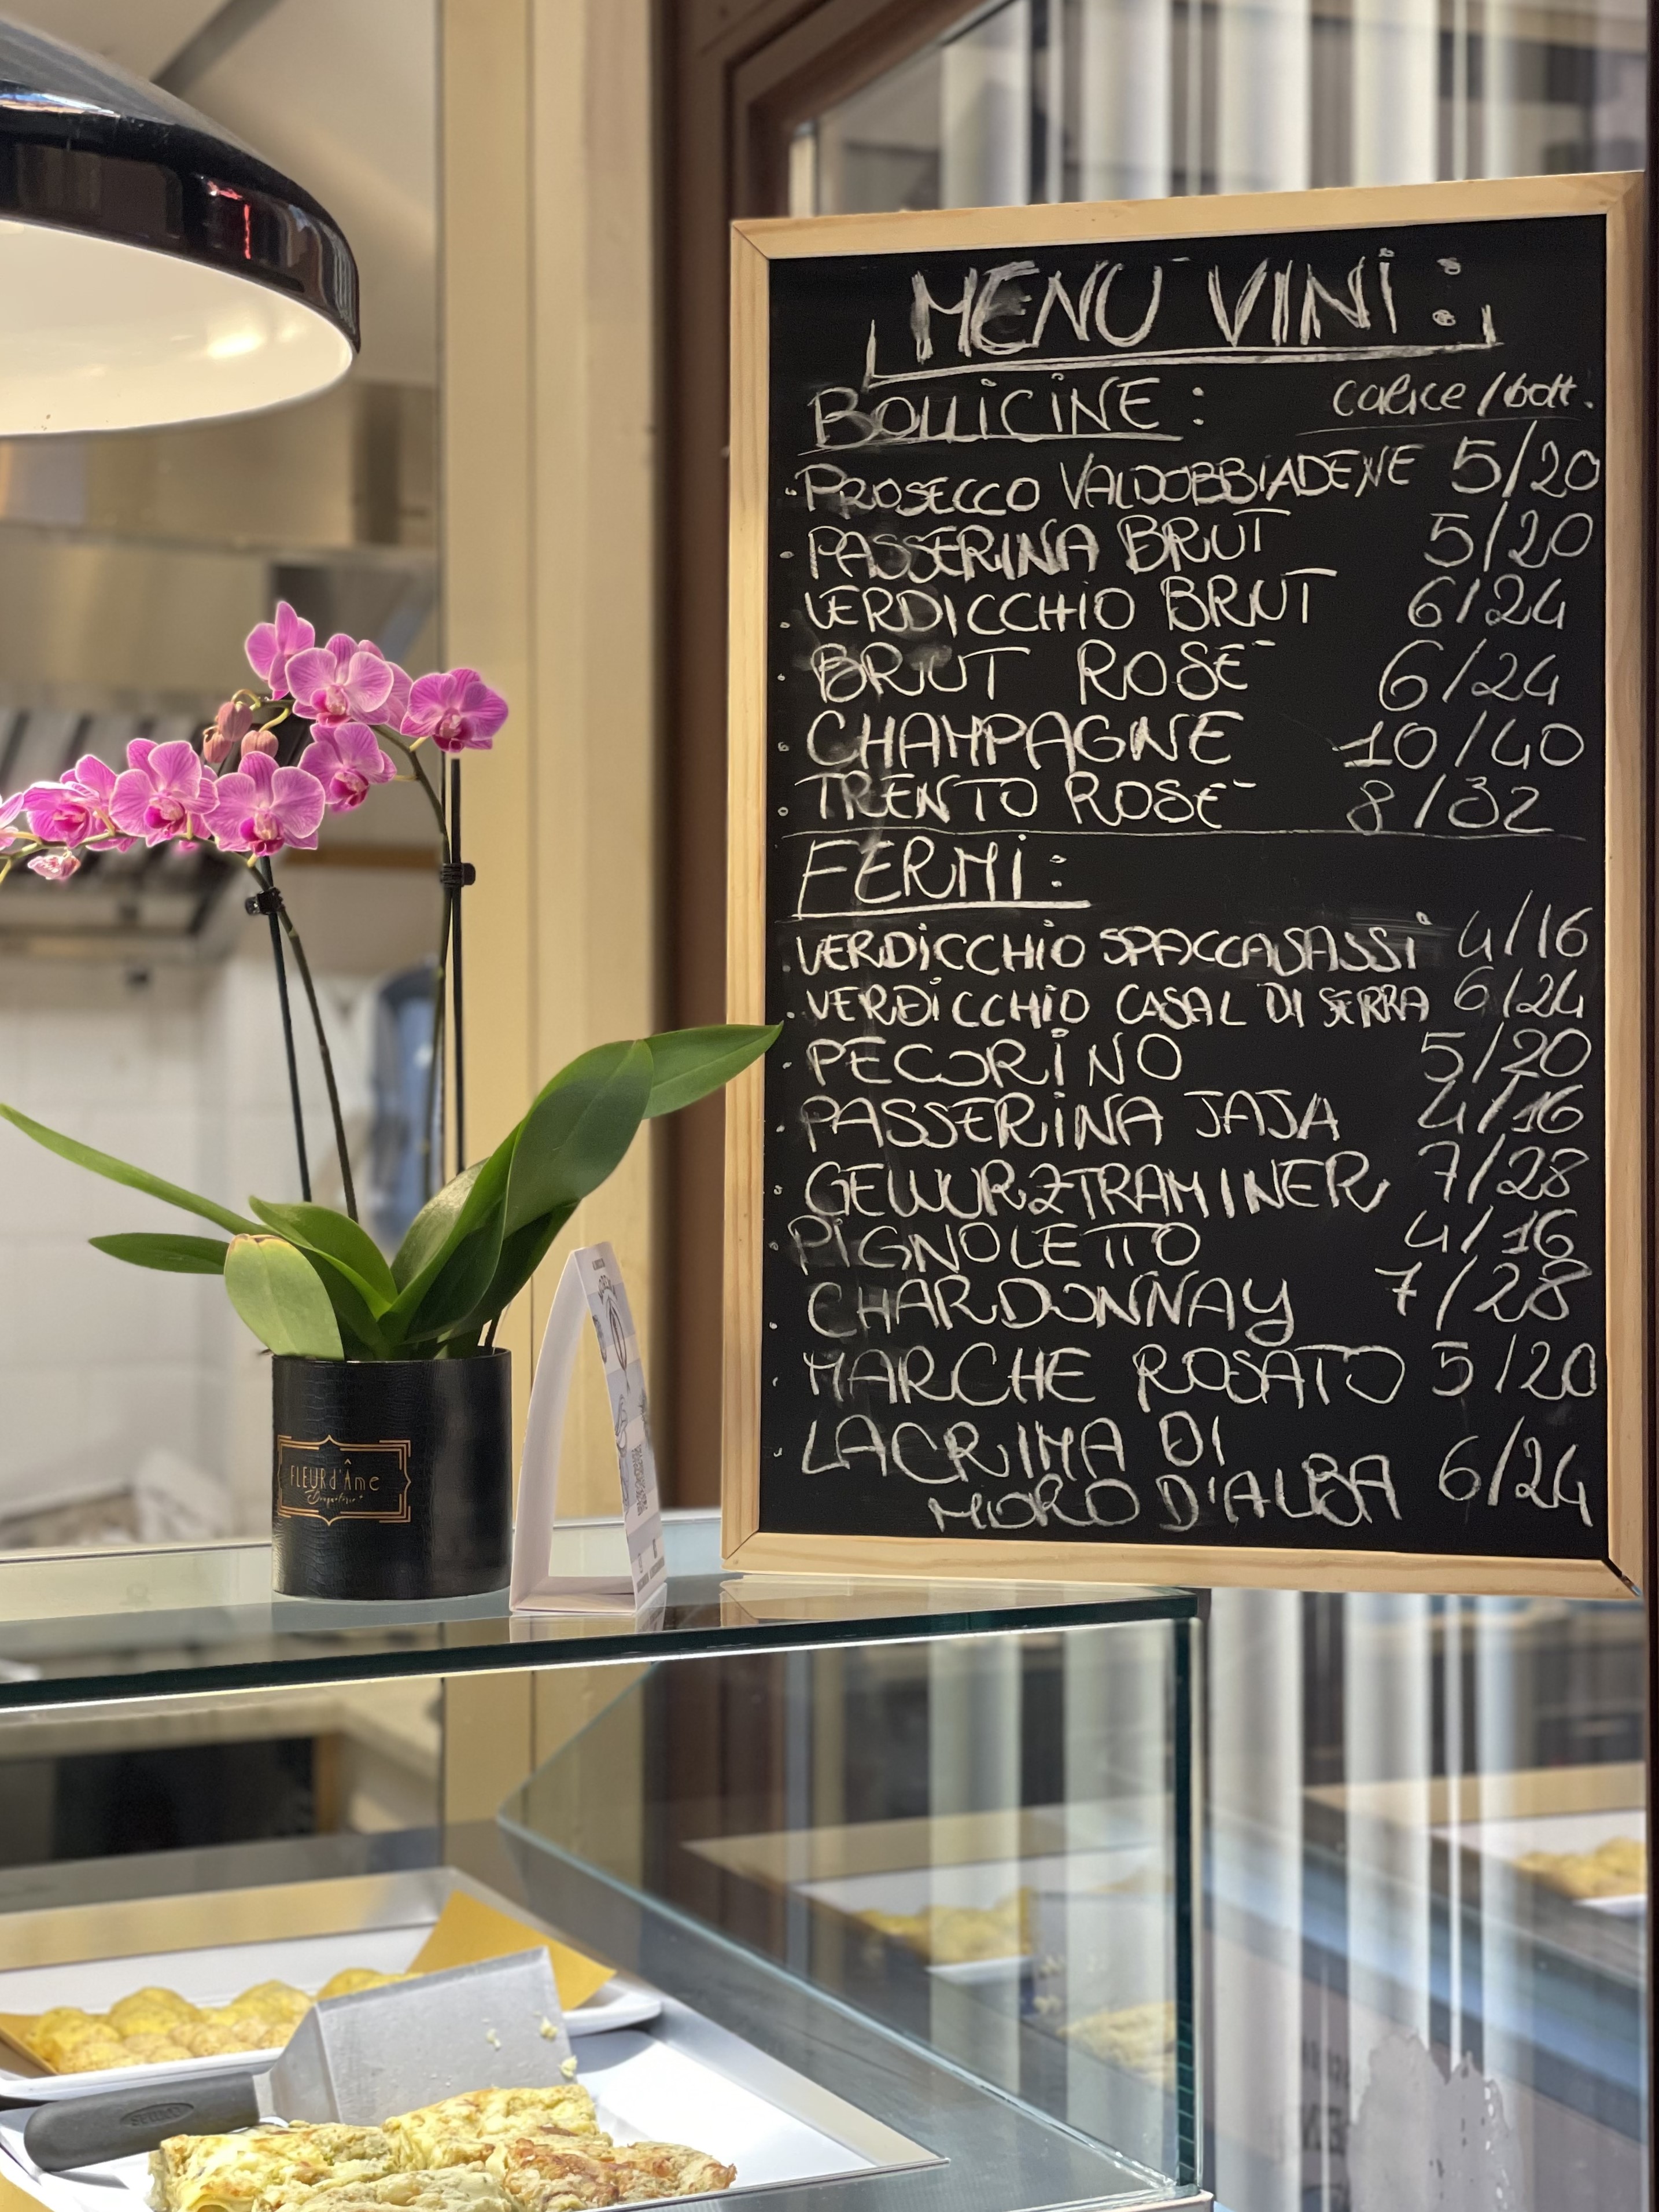 MENU VINI:
BOLLICINE: calice/bott.
· PROSECCO VALDOBBIADENE 5/20
· PASSERINA BRUT 5/20
· VERDICCHIO BRUT 6/24
· BRUT ROSE- 6/24
· CHAMPAGNE 10/40
· TRENTO ROSE- 8/32
FERMI:
· VERDICCHIO SPACCASASSI 4/16
· VERDICCHIO CASAL DI SERRA 6/24
· PECORINO 5/20
· PASSERINA JAJA 4/16
· GEWURZTRAMINER 7/28
· PIGNOLETTO 4/16
· CHARDONNAY 7/28
· MARCHE ROSATO 5/20
· LACRIMA DI
MORO D'ALBA 6/24
FLEURd'Âme